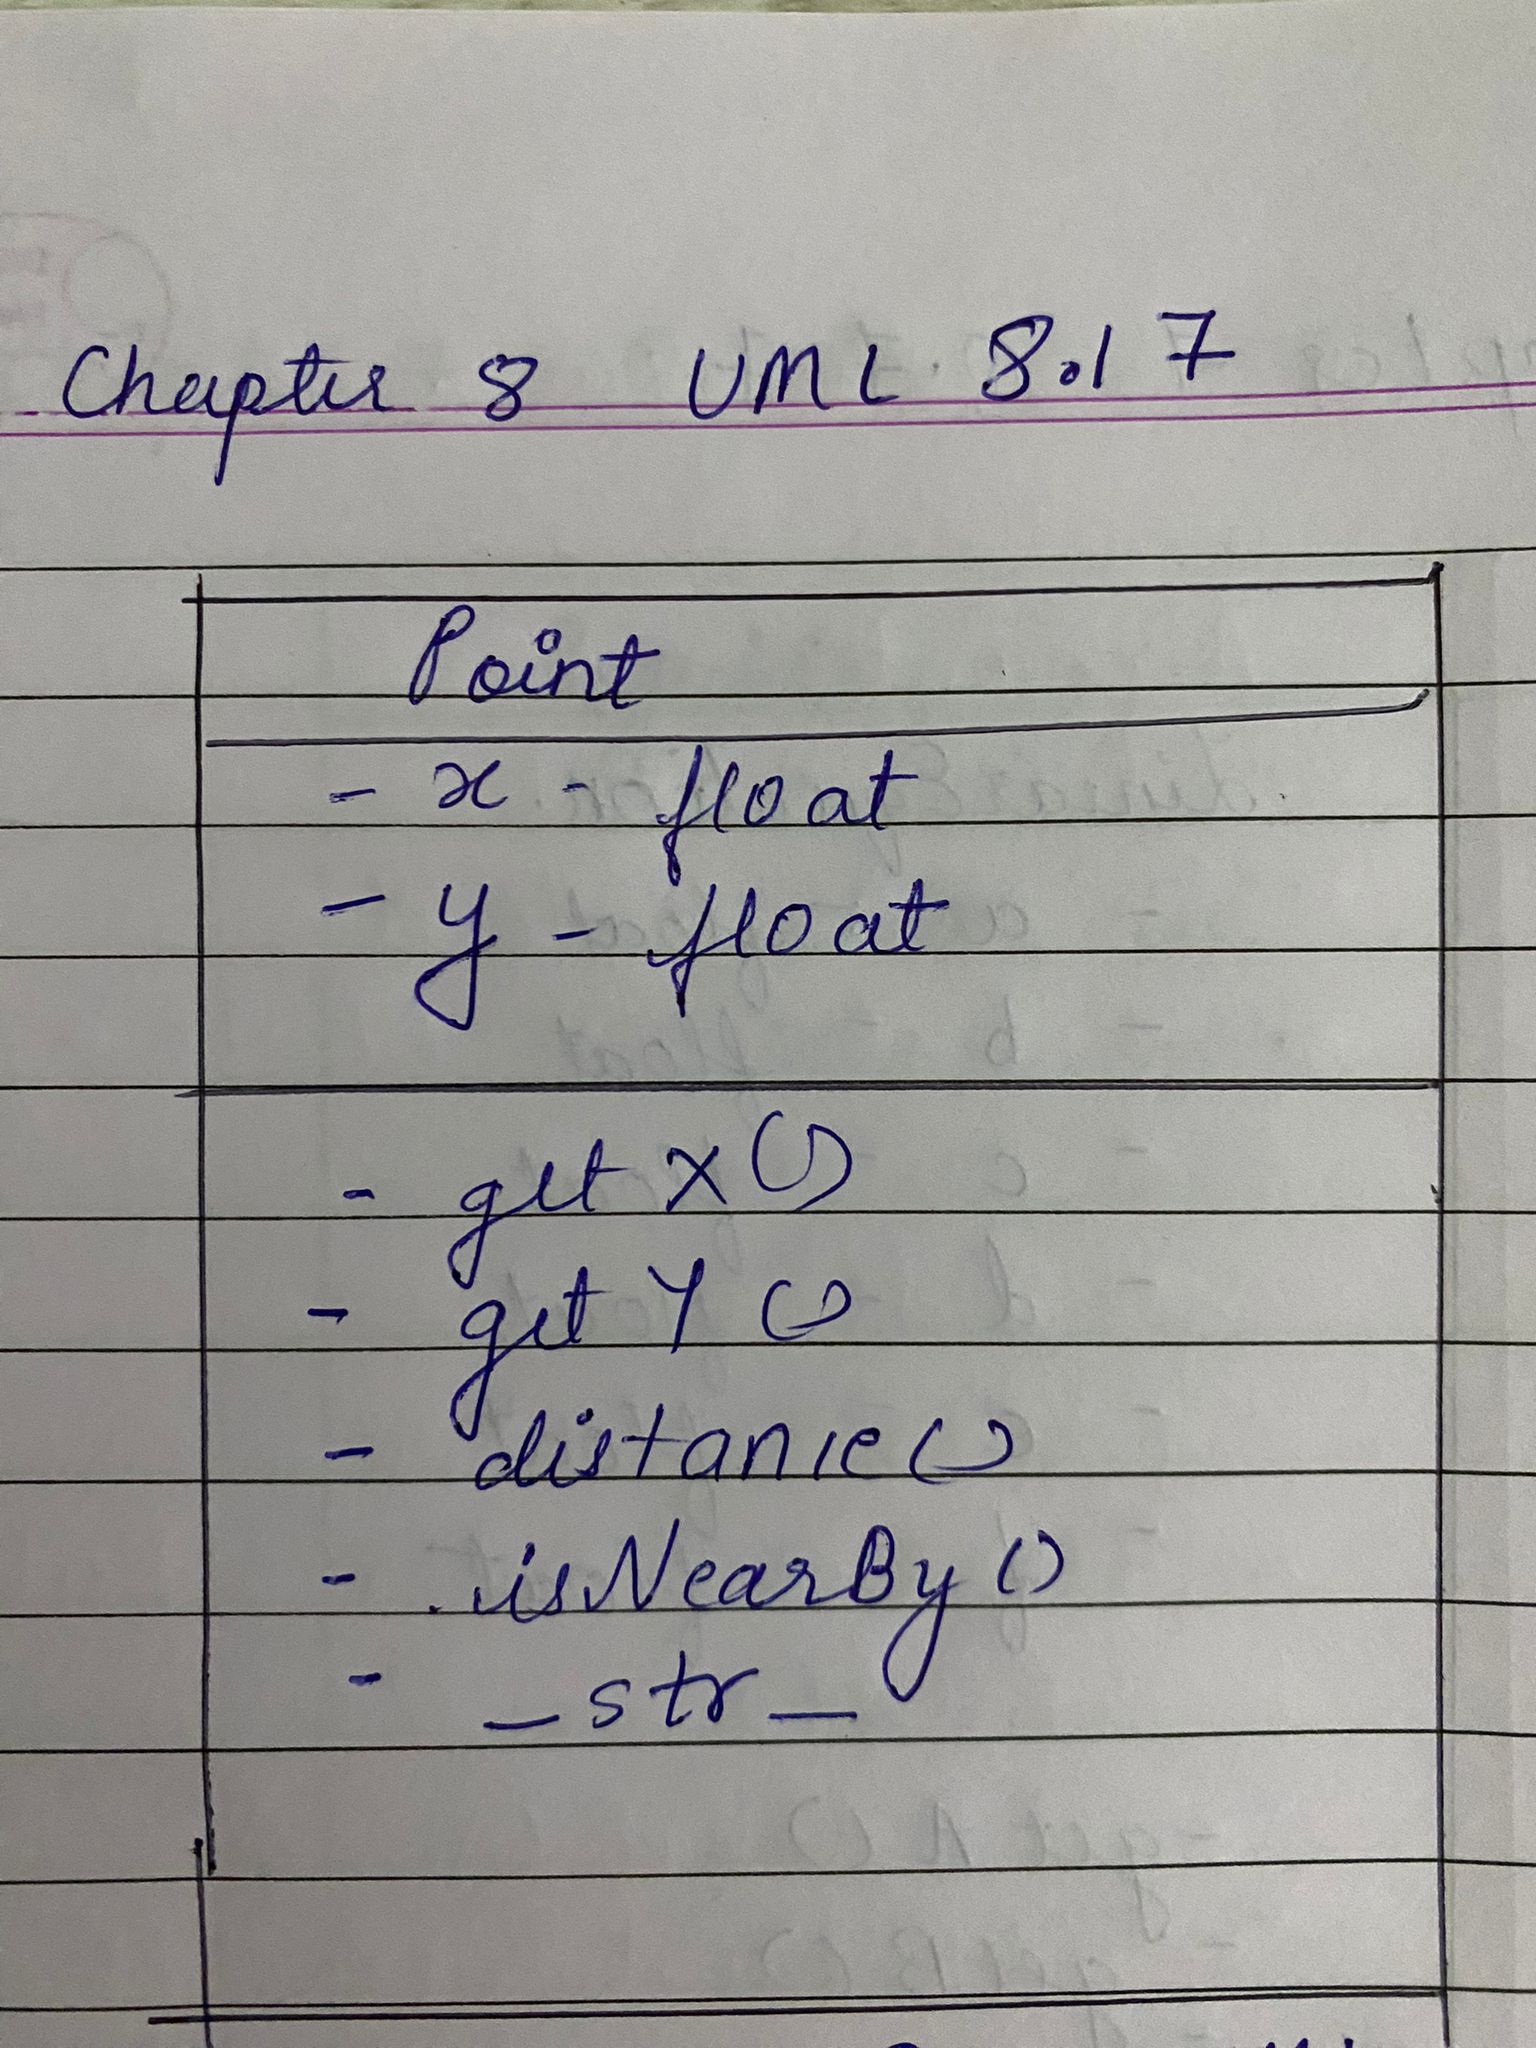 Chapter 8 UML 8.17
Point
- x - float
- y - float
- getX()
- getY()
- distance()
- isNearBy()
- _str_